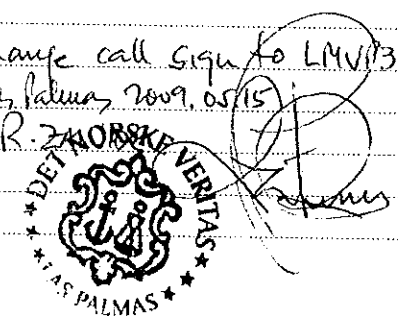 ange call sign to LMVP3
Palmas, 2009.05.15
R.
DET NORSKE VERITAS
LAS PALMAS